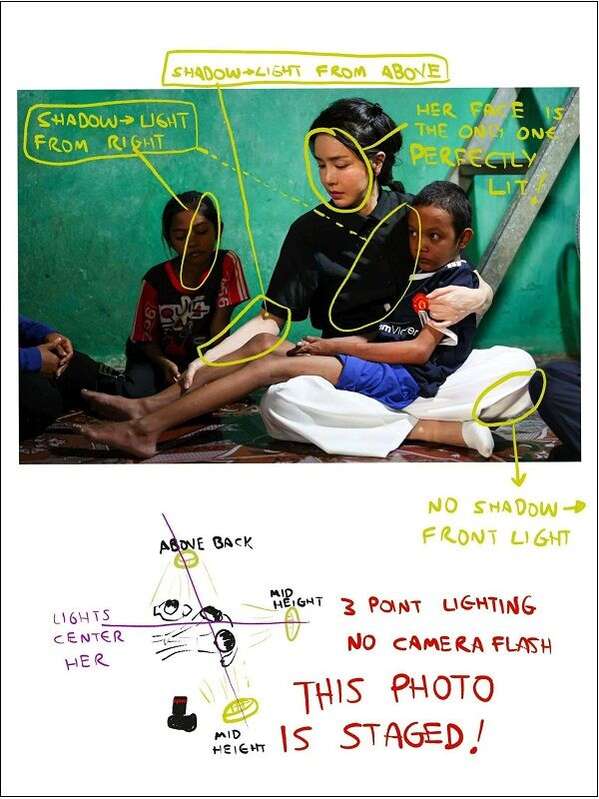 SHADOW→LIGHT FROM ABOVE
SHADOW→LIGHT
FROM RIGHT
HER FACE IS
THE ONLY ONE
PERFECTLY
LIT!
NO SHADOW→
FRONT LIGHT
ABOVE BACK
MID
HEIGHT
LIGHTS
CENTER
HER
3 POINT LIGHTING
NO CAMERA FLASH
THIS PHOTO
IS STAGED!
MID
HEIGHT